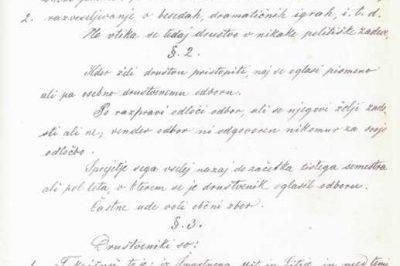 2. razveseljevanje v besedah, dramatičnih igrah, i. t. d.
Ne vtika se tedaj društvo v nikake politiške zadeve.
§. 2.
Kdor želi društvu pristopiti, naj se oglasi pismeno
ali pa osebno društvenemu odboru.
Po razpravi odloči odbor, ali se njegovi želji zado-
sti ali ne, vender odbor ni odgovoren nikomur za svojo
odločbo.
Sprejetje sega vselej nazaj do začetka tistega semestra
ali pol leta, v kterem se je društvenik oglasil odboru.
Častne ude voli občni zbor.
§. 3.
Društveniki so: